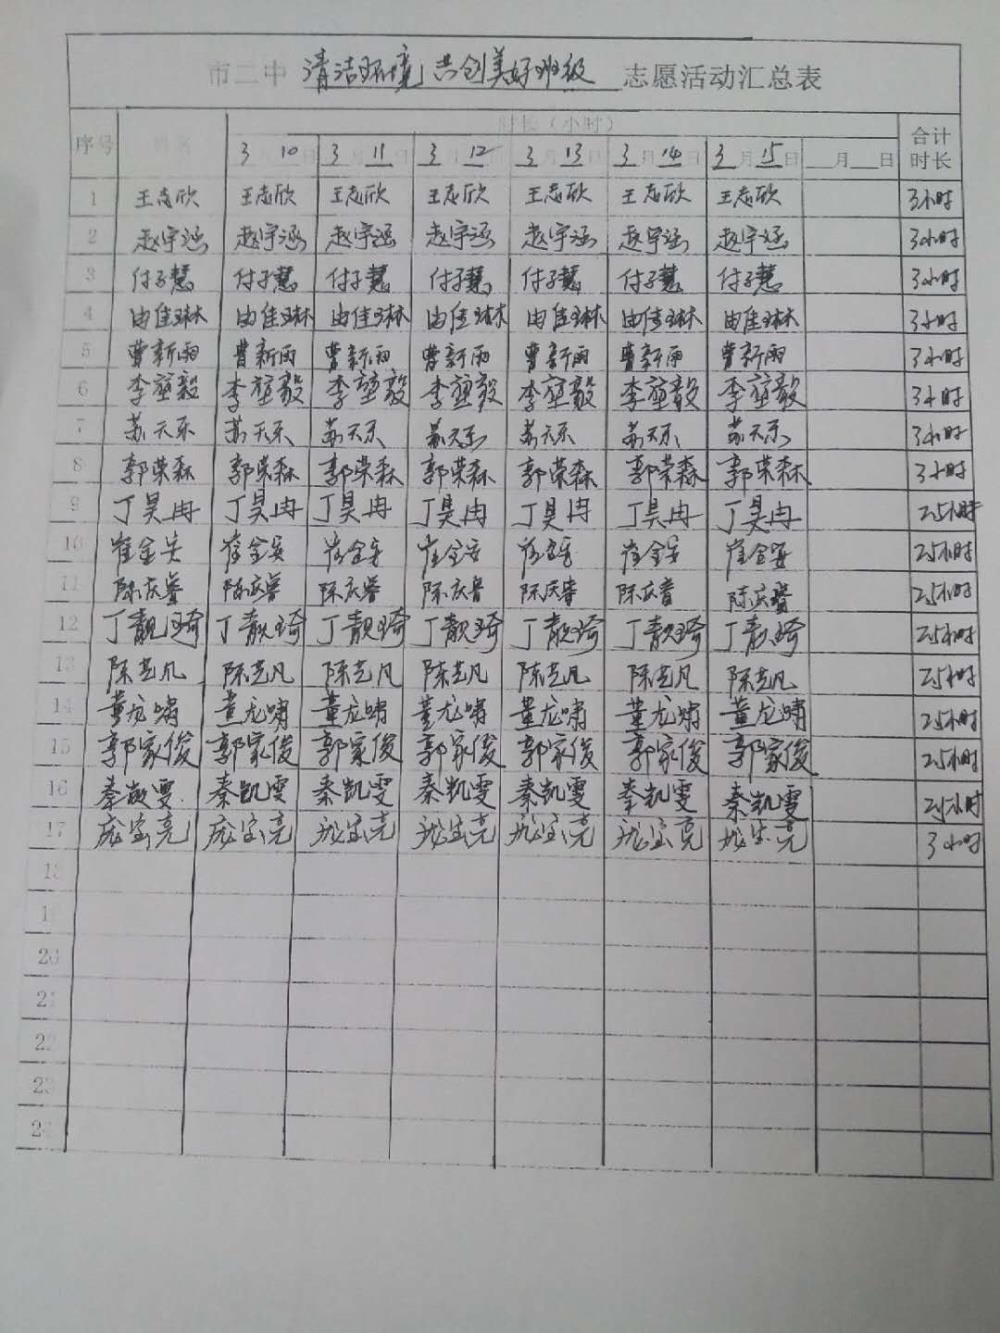 市二中 清洁环境 共创美好班级 志愿活动汇总表
序号 姓名 时长（小时） 合计时长
3月10日 3月11日 3月12日 3月13日 3月14日 3月15日 月 日
1 王志欣 王志欣 王志欣 王志欣 王志欣 王志欣 王志欣 3小时
2 赵宇涵 赵宇涵 赵宇涵 赵宇涵 赵宇涵 赵宇涵 赵宇涵 3小时
3 付子慧 付子慧 付子慧 付子慧 付子慧 付子慧 付子慧 3小时
4 由佳琳 由佳琳 由佳琳 由佳琳 由佳琳 由佳琳 由佳琳 3小时
5 曹新雨 曹新雨 曹新雨 曹新雨 曹新雨 曹新雨 曹新雨 3小时
6 李堃毅 李堃毅 李堃毅 李堃毅 李堃毅 李堃毅 李堃毅 3小时
7 苏天乐 苏天乐 苏天乐 苏天乐 苏天乐 苏天乐 苏天乐 3小时
8 郭荣森 郭荣森 郭荣森 郭荣森 郭荣森 郭荣森 郭荣森 3小时
9 丁昊冉 丁昊冉 丁昊冉 丁昊冉 丁昊冉 丁昊冉 丁昊冉 2.5小时
10 崔金安 崔金安 崔金安 崔金安 崔金安 崔金安 崔金安 2.5小时
11 陈庆睿 陈庆睿 陈庆睿 陈庆睿 陈庆睿 陈庆睿 陈庆睿 2.5小时
12 丁靓琦 丁靓琦 丁靓琦 丁靓琦 丁靓琦 丁靓琦 丁靓琦 2.5小时
13 陈艺凡 陈艺凡 陈艺凡 陈艺凡 陈艺凡 陈艺凡 陈艺凡 2.5小时
14 董龙啸 董龙啸 董龙啸 董龙啸 董龙啸 董龙啸 董龙啸 2.5小时
15 郭家俊 郭家俊 郭家俊 郭家俊 郭家俊 郭家俊 郭家俊 2.5小时
16 秦凯雯 秦凯雯 秦凯雯 秦凯雯 秦凯雯 秦凯雯 秦凯雯 2.5小时
17 庞宝亮 庞宝亮 庞宝亮 庞宝亮 庞宝亮 庞宝亮 庞宝亮 3小时
18
19
20
21
22
23
24